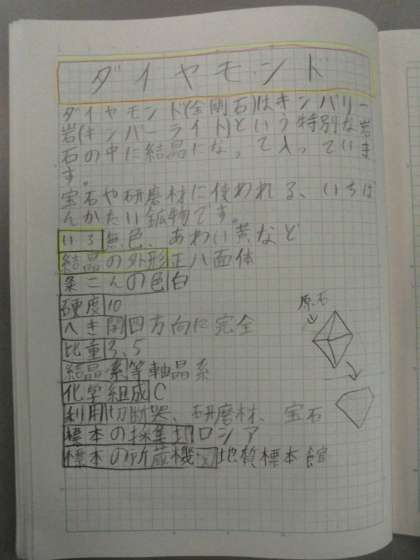 ダイヤモンド
ダイヤモンド(金剛石)はキンバリー
岩(キンバーライト)という特別な岩
石の中に結晶になって入っていま
す。
宝石や研磨材に使われる、いちば
んかたい鉱物です。
いろ 無色、あわい黄など
結晶の外形 正八面体
条こんの色 白
硬度 10
へき開 四方向に完全
比重 3.5
結晶系 等軸晶系
化学組成 C
利用 切断器、研磨材、宝石
標本の採集地 ロシア
標本の所蔵機関 地質標本館
原石